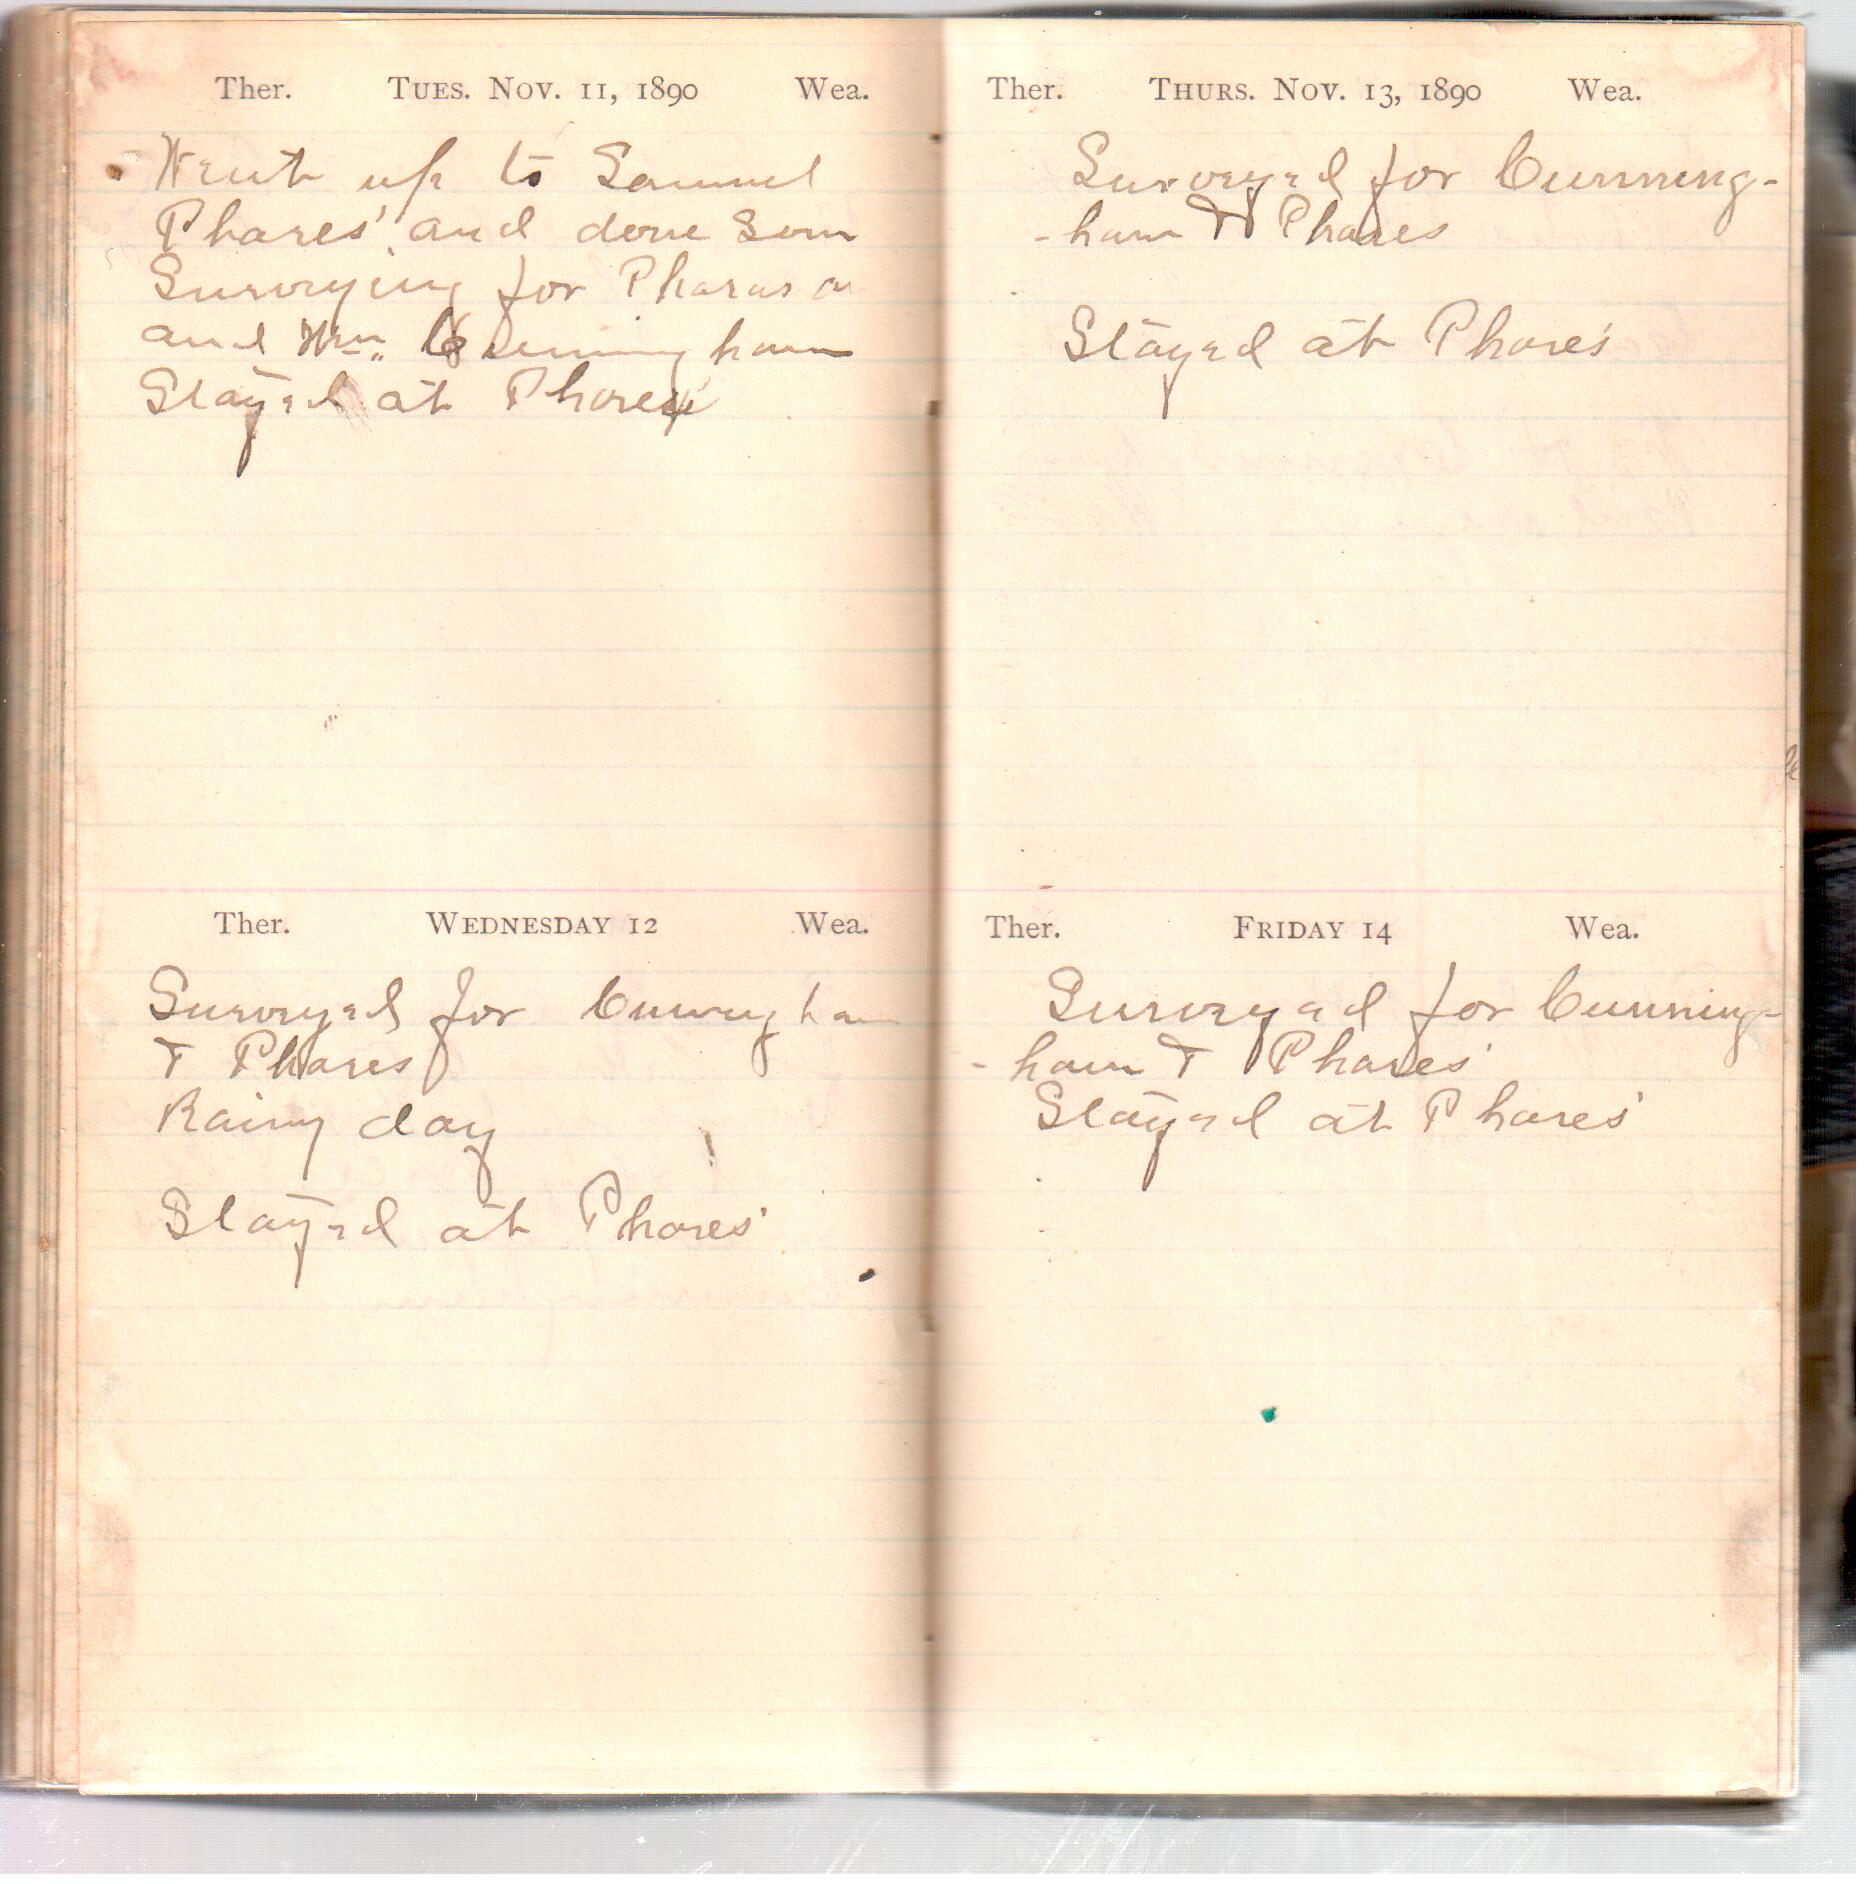 Ther. TUES. NOV. 11, 1890 Wea.
Went up to Samuel
Phares' and done Som
Surveying for Phares a
and Wm. Cunningham
Stayed at Phares'
Ther. WEDNESDAY 12 Wea.
Surveyed for Cuningham
& Phares
Rainy day
Stayed at Phares'
Ther. THURS. NOV. 13, 1890 Wea.
Surveyed for Cunning-
-ham & Phares
Stayed at Phares'
Ther. FRIDAY 14 Wea.
Surveyed for Cunning-
-ham & Phares'
Stayed at Phares'